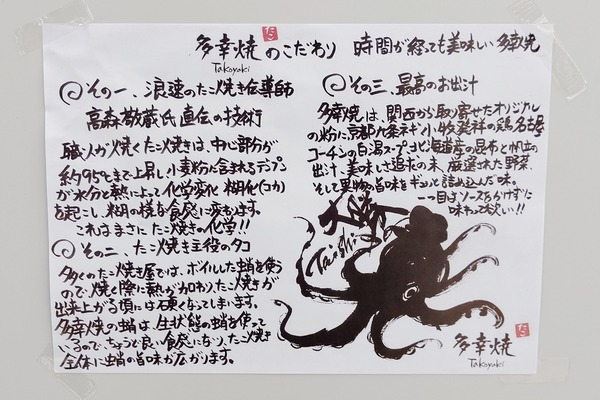 たこ
多幸焼のこだわり 時間が経っても美味しい多幸焼
Takoyaki
その一、浪速のたこ焼き伝導師
高森敬蔵氏直伝の技術
職人が焼くたこ焼きは、中心部が
約95℃まで上昇し小麦粉に含まれるデンプン
が水分と熱によって化学変化 糊化(コカ)
を起こし、糊の様な食感に変わります。
これはまさに たこ焼きの化学!!
その二、たこ焼き主役のタコ
多くのたこ焼き屋では、ボイルした蛸を使う
ので、焼く際に熱が加わりたこ焼きが
出来上がる頃には硬くなってしまいます。
多幸焼の蛸は、生状態の蛸を使って
いるので、ちょうど良い食感になり、たこ焼き
全体に蛸の旨味が広がります。
その三、最高のお出汁
多幸焼は、関西から取り寄せたオリジナル
の粉に京都九条ネギ 小牧発祥の鶏名古屋
コーチンの白湯スープと北海道産の昆布と帆立の
出汁、美味しさ追求の末、厳選された野菜、
そして果物の旨味をギュッと詰め込んだ味。
一つ目はソースをかけずに
味わって欲しい!!
Taishi
多幸焼
Takoyaki
たこ